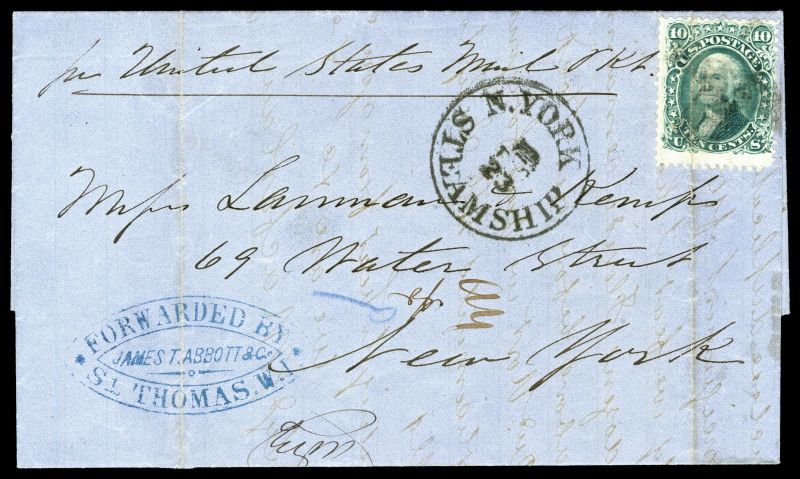 per United States Mail Pkt.
10 U.S. POSTAGE 10
TEN CENTS.
U S
N. YORK STEAMSHIP
Messrs Lanman & Kemp
69 Water Street
New York
FORWARDED BY
JAMES T. ABBOTT & Co
ST. THOMAS. W.I.